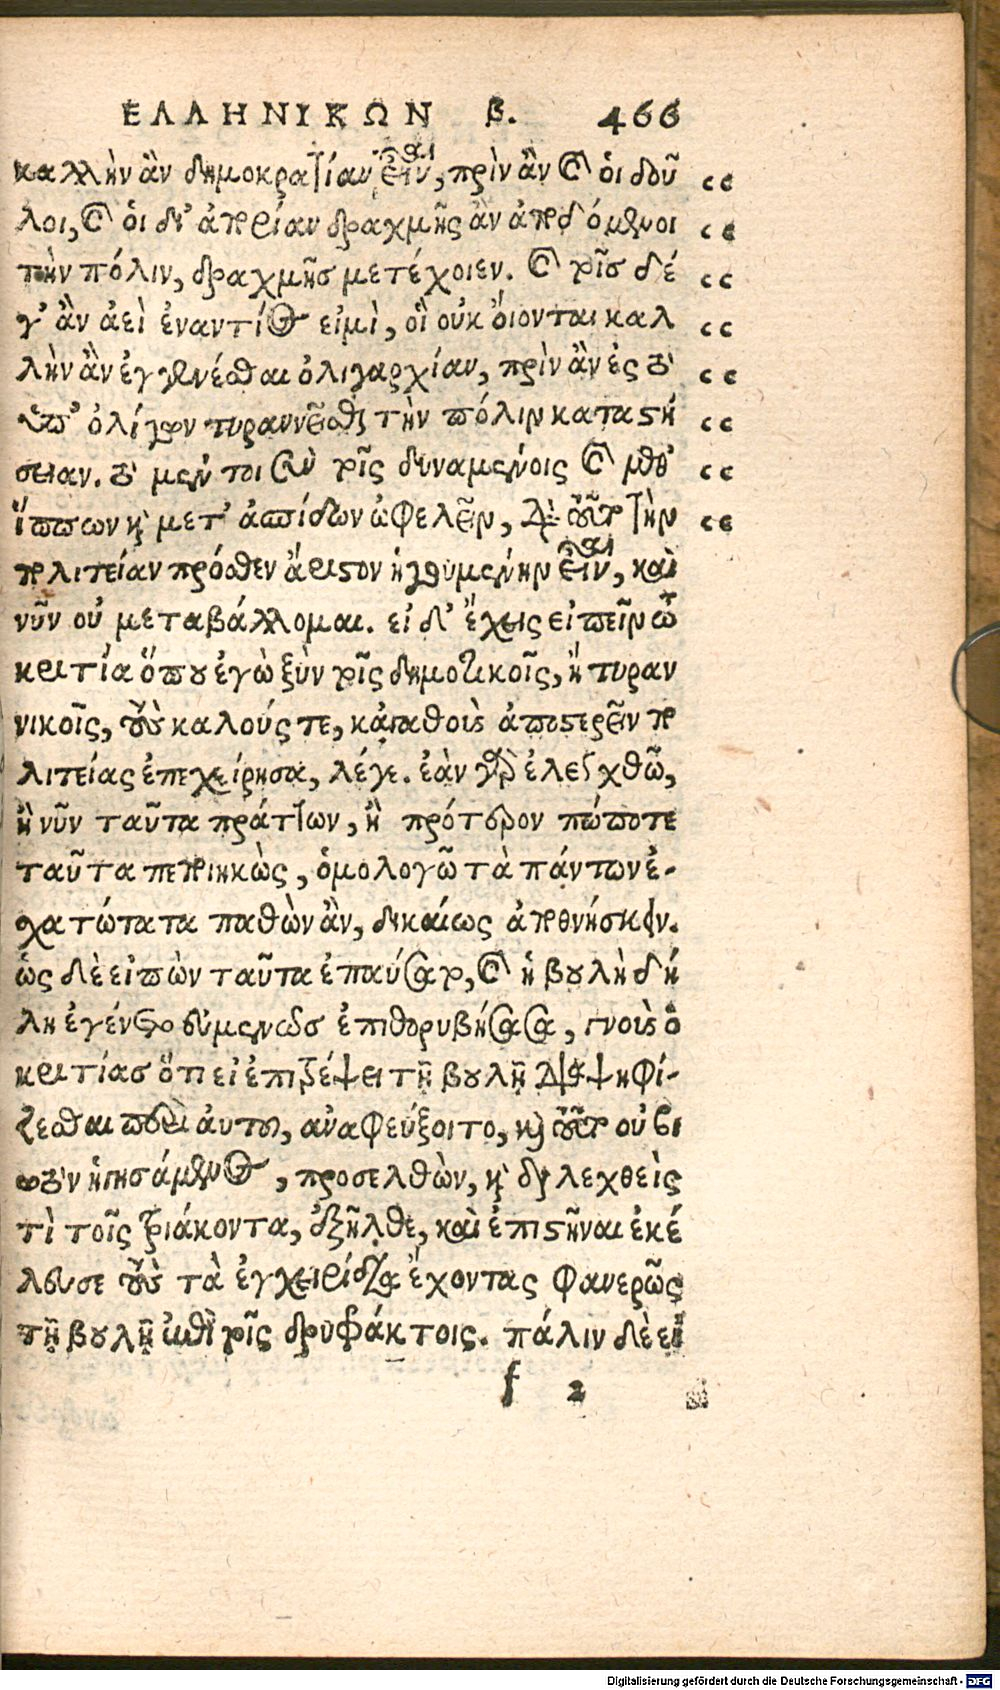 ΕΛΛΗΝΙΚΩΝ β. 466
καλλὴν ἂν δημοκρατίαν εἶναι, πρὶν ἂν καὶ ὁι δοῦ
λοι, καὶ ὁι δι' ἀπορίαν δραχμῆς ἂν ἀποδόμενοι
τὴν πόλιν, δραχμῆσ μετέχοιεν. καὶ τοῖσ δέ
γ' ἂν ἀεὶ ἐναντίος εἰμὶ, οἳ οὐκ ὄιονται καλ
λὴν ἂν ἐγγενέσθαι ὀλιγαρχίαν, πρὶν ἂν ἐς τὸ
ὑπ' ὀλίγων τυραννεῖσθαι τὴν πόλιν καταστή
σειαν. τὸ μέν τοι σὺν τοῖς δυναμένοις καὶ μεθ'
ἵππων καὶ μετ' ἀσπίδων ὠφελεῖν, διὰ τοῦτο τὴν
πολιτείαν πρόσθεν ἄριστον ἡγούμενην εἶναι, καὶ
νῦν οὐ μεταβάλλομαι. εἰ δ' ἔχεις εἰπεῖν ὦ
κριτία ὅπου ἐγὼ ξὺν τοῖς δημοτικοῖς, ἢ τυραν
νικοῖς, τοὺς καλούς τε, κἀγαθοὺς ἀποστερεῖν πο
λιτείας ἐπεχείρησα, λέγε. ἐὰν γὰρ ἐλεγχθῶ,
ἢ νῦν ταῦτα πράττων, ἢ πρότερον πώποτε
ταῦτα πεποιηκὼς, ὁμολογῶ τὰ πάντων ἐ-
σχατώτατα παθὼν ἂν, δικαίως ἀποθνήσκειν.
ὡς δὲ εἰπὼν ταῦτα ἐπαύσατο, καὶ ἡ βουλὴ δή
λη ἐγένετο εὐμενῶσ ἐπιθορυβήσασα, γνοὺς ὁ
κριτίασ ὅτι εἰ ἐπιτρέψει τῇ βουλῇ διαψηφί-
ζεσθαι περὶ ἀυτοῦ, αναφεύξοιτο, καὶ τοῦτο οὐ βι
ωτὸν ἡγησάμενος, προσελθὼν, καὶ διαλεχθεὶς
τὶ τοῖς τριάκοντα, ἐξῆλθε, καὶ ἐπιστῆναι ἐκέ
λευσε τοὺς τὰ ἐγχειρίδια ἔχοντας φανερῶς
τῇ βουλῇ ἐπὶ τοῖς δρυφάκτοις. πάλιν δὲ εἰ
f 2
Digitalisierung gefördert durch die Deutsche Forschungsgemeinschaft - DFG